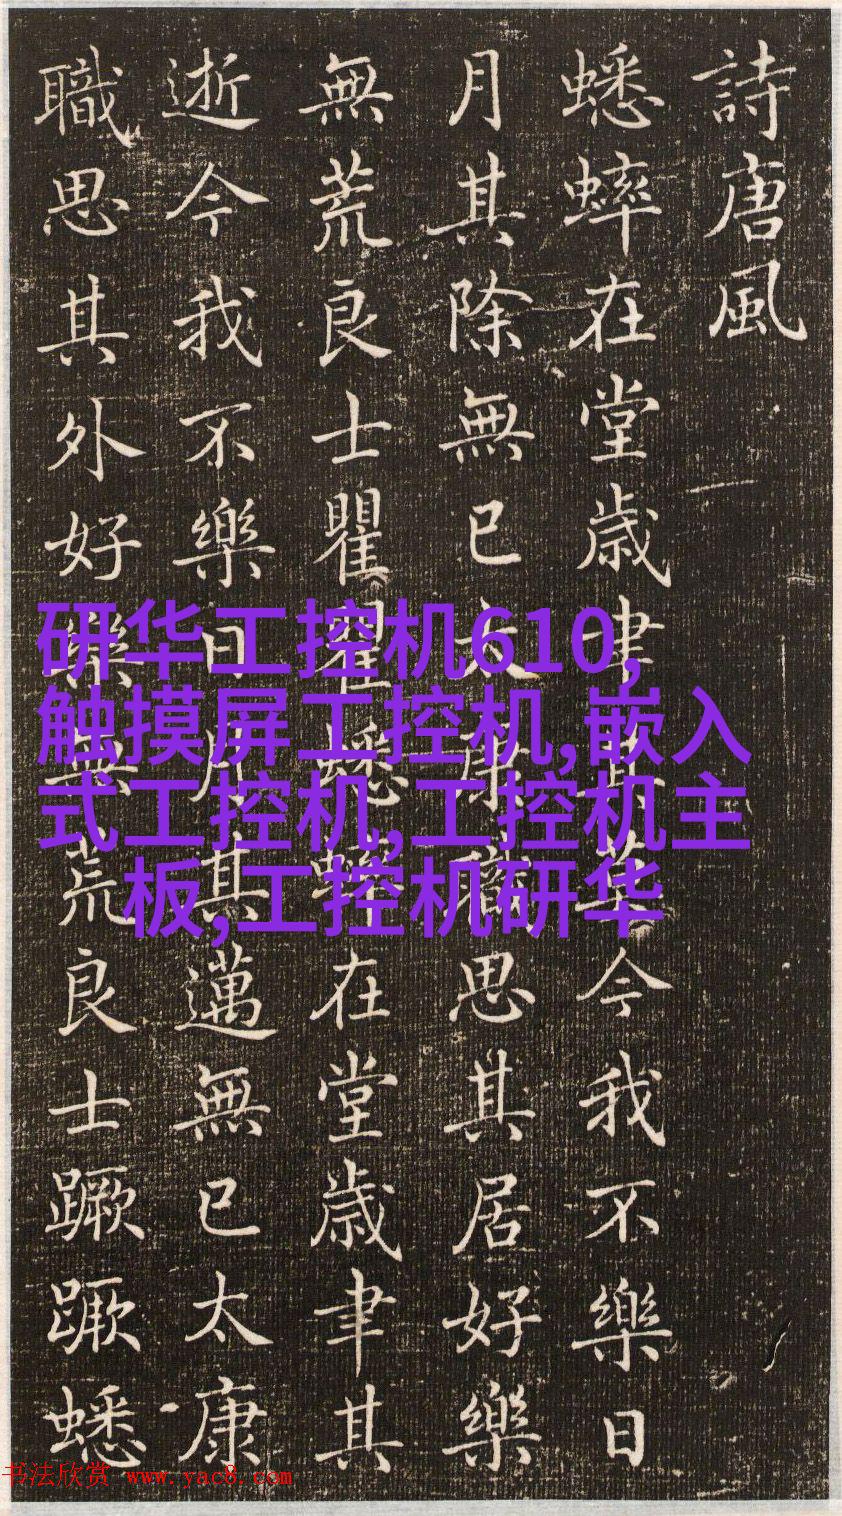 詩唐風
蟋蟀在堂歳聿其莫今我不樂日
月其除無已太康職思其居好樂
無荒良士瞿瞿蟋蟀在堂歳聿其
逝今我不樂日月其邁無已太康
職思其外好樂無荒良士蹶蹶蟋
研华工控机610,
触摸屏工控机,嵌入
式工控机,工控机主
板,工控机研华
书法欣赏 www.yac8.com